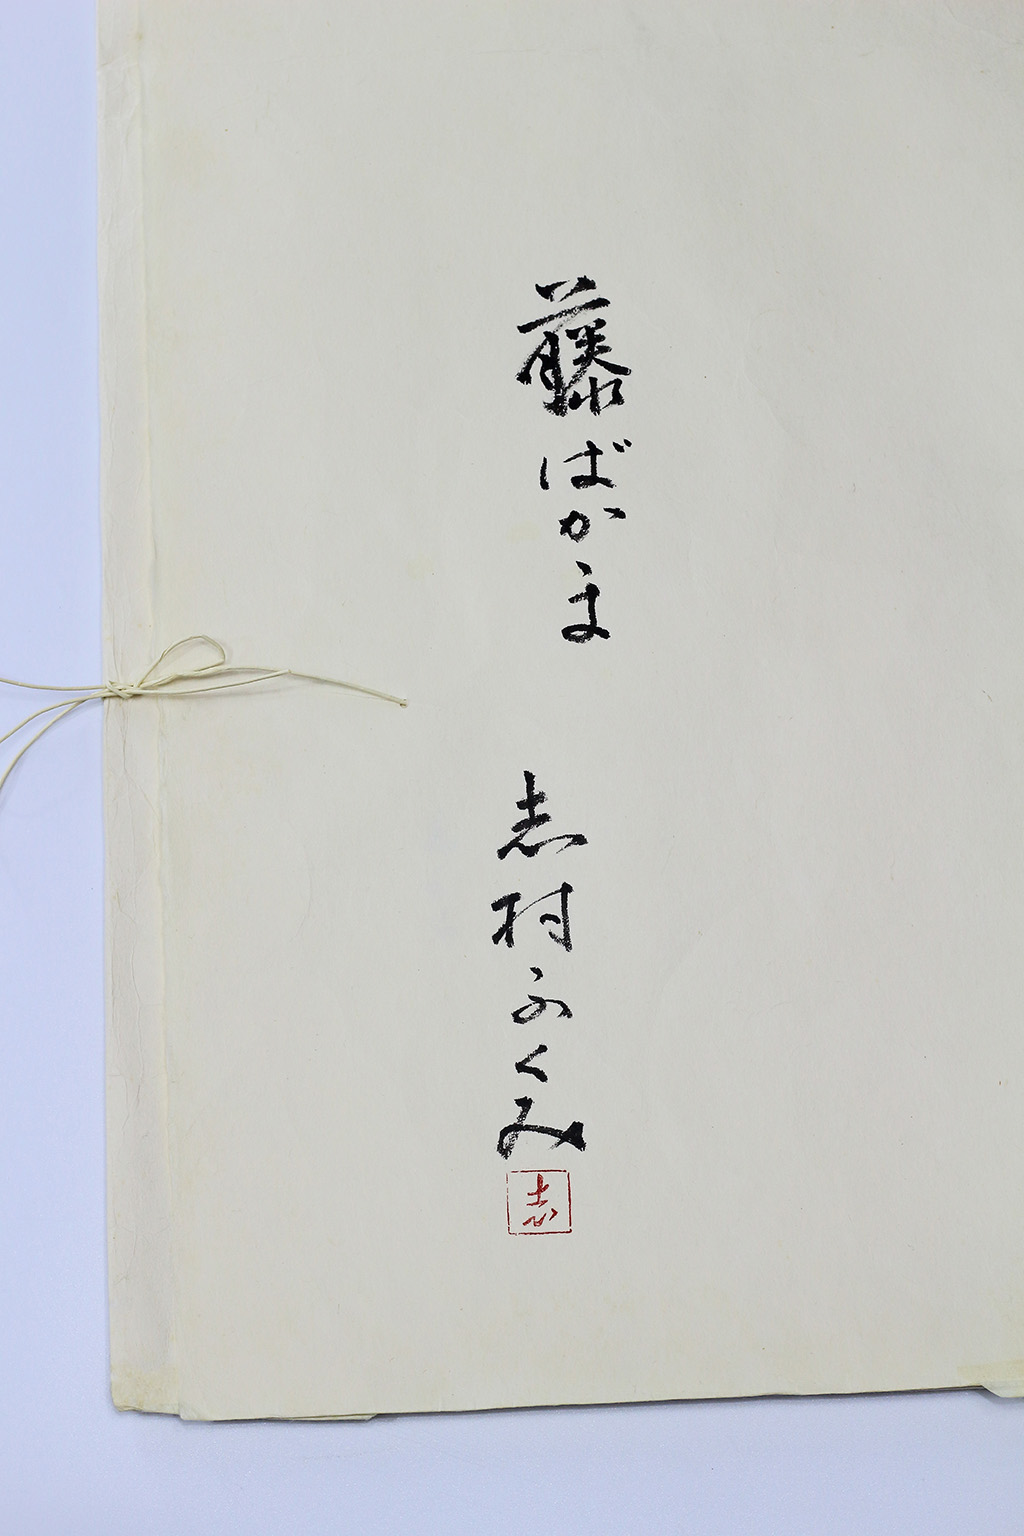 藤ばかま
志村ふくみ
志